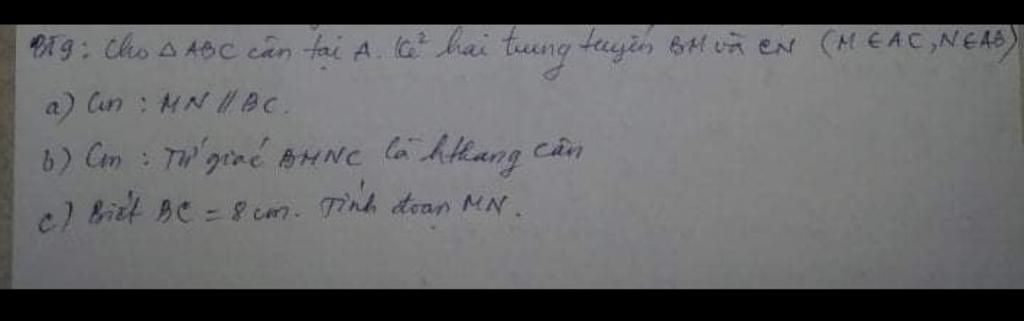 BT9: Cho △ABC cân tại A. Kẻ hai trung tuyến BM và CN (M∈AC, N∈AB)
a) Cm : MN // BC.
b) Cm : Tứ giác BMNC là hthang cân
c) Biết BC = 8 cm. Tính đoạn MN.